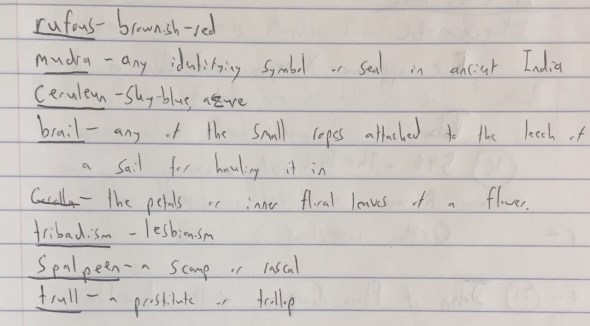 rufous - brownish-red
mudra - any identifying symbol or seal in ancient India
Cerulean - Sky-blue, azure
brail - any of the small ropes attached to the leech of
a sail for hauling it in
Corolla - the petals or inner floral leaves of a flower.
tribadism - lesbianism
Spalpeen - a scamp or rascal
trull - a prostitute or trollop